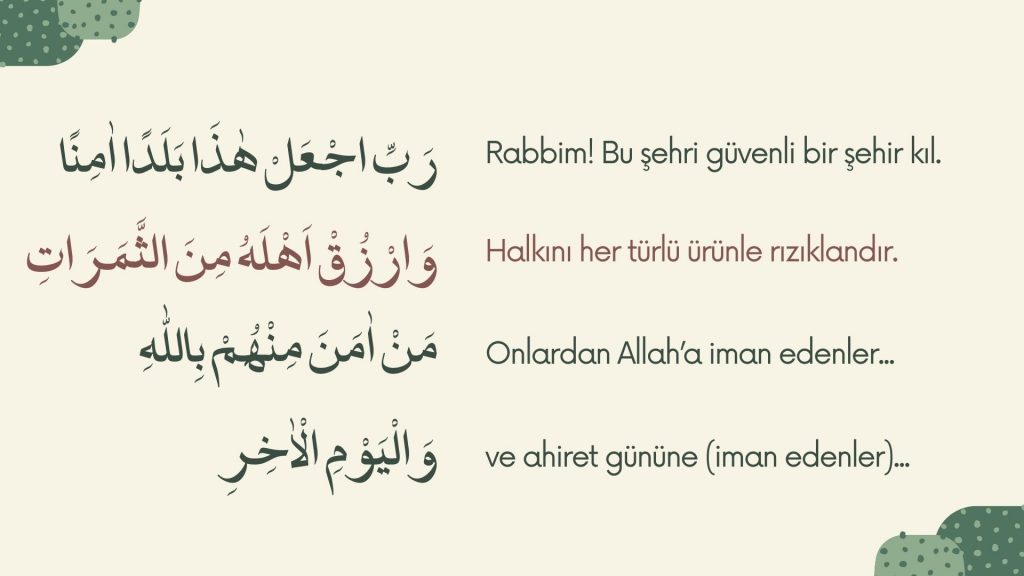 رَبِّ اجْعَلْ هٰذَا بَلَدًا اٰمِنًا
Rabbim! Bu şehri güvenli bir şehir kıl.
وَارْزُقْ اَهْلَهُ مِنَ الثَّمَرَاتِ
Halkını her türlü ürünle rızıklandır.
مَنْ اٰمَنَ مِنْهُمْ بِاللّٰهِ
Onlardan Allah’a iman edenler...
وَالْيَوْمِ الْاٰخِرِ
ve ahiret gününe (iman edenler)...